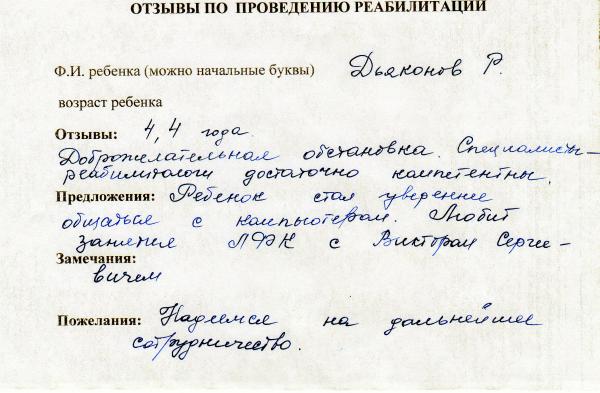 ОТЗЫВЫ ПО ПРОВЕДЕНИЮ РЕАБИЛИТАЦИИ
Ф.И. ребенка (можно начальные буквы) Дьяконов Р.
возраст ребенка
Отзывы: 4,4 года.
Доброжелательная обстановка. Специалисты-
реабилитологи достаточно компетентны.
Предложения: Ребенок стал увереннее
общаться с компьютером. Любит
занятия ЛФК с Виктором Серге-
Замечания:
вичем
Пожелания: Надеемся на дальнейшее
сотрудничество.